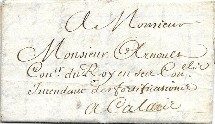 A Monsieur
Monsieur Arnoult
Con.er du Roy en ses Con.els
Intendant des fortifications
a Calais